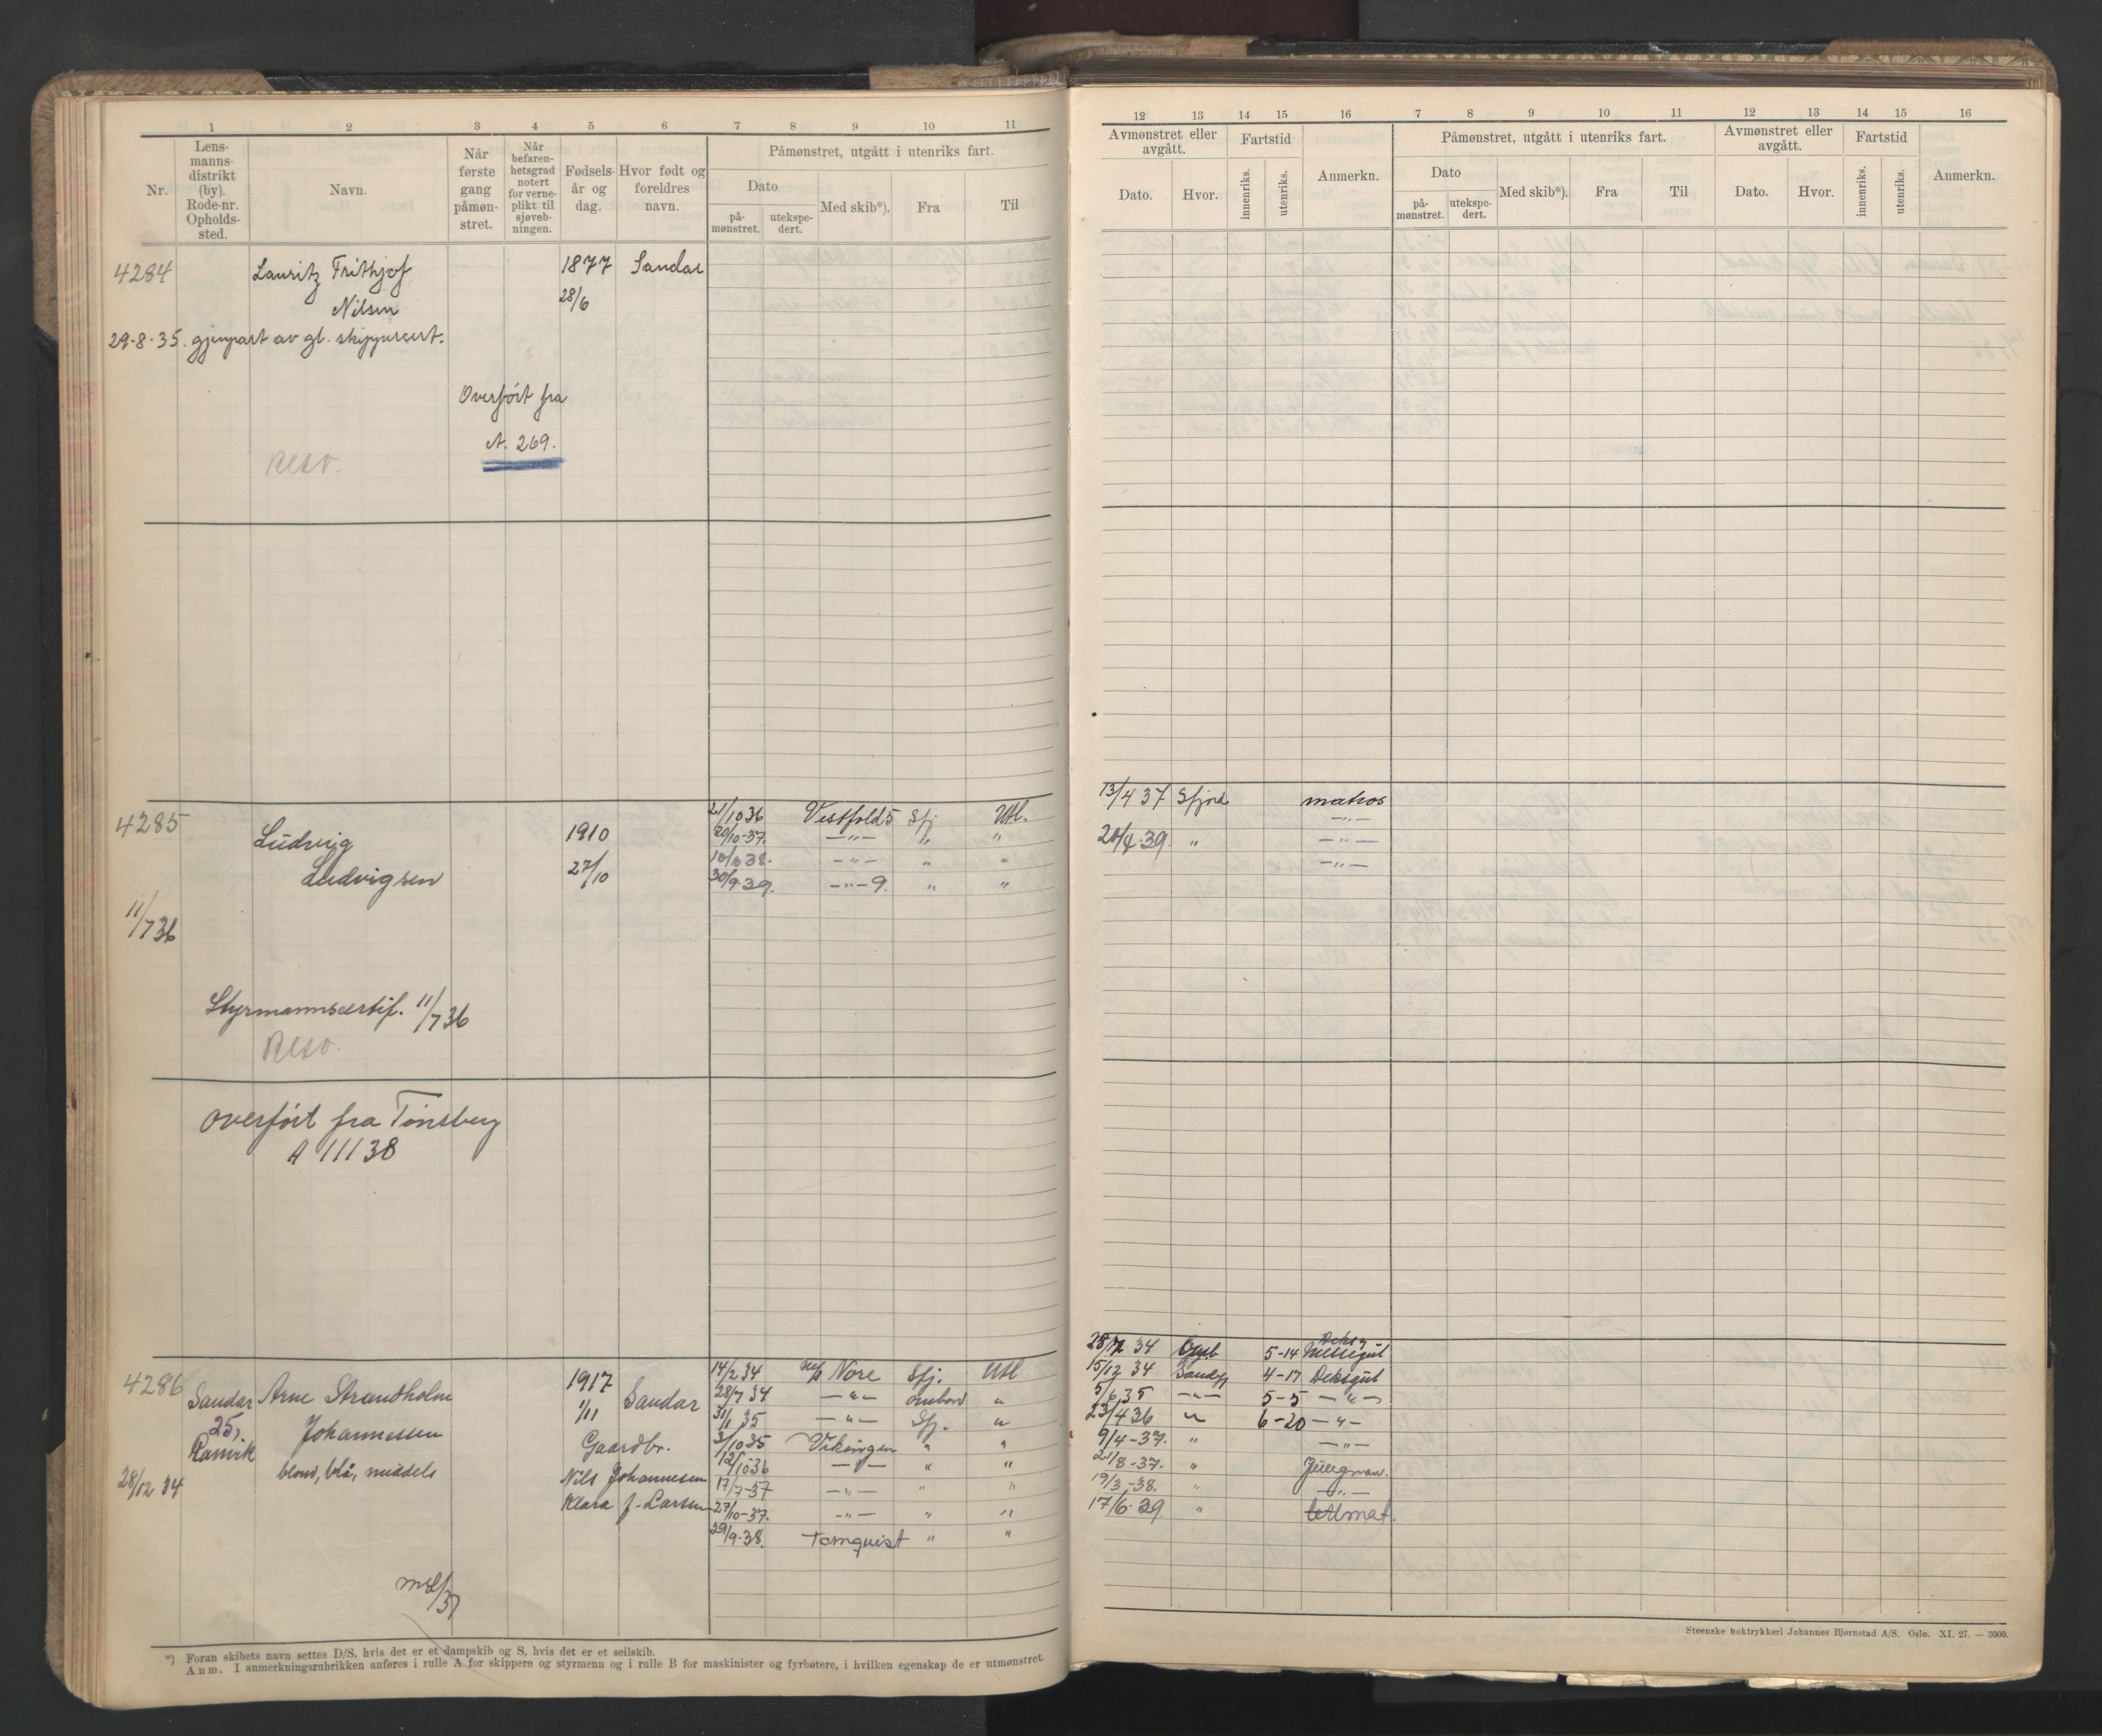 1 2 3 4 5 6 7 8 9 10 11
Nr.
Lens-
manns-
distrikt
(by).
Rode-nr.
Opholds-
sted.
Navn.
Når
første
gang
påmøn-
stret.
Når
befaren-
hetsgrad
notert
for verne-
plikt til
sjøveb-
ningen.
Fødsels-
år og
dag.
Hvor født og
foreldres
navn.
Påmønstret, utgått i utenriks fart.
Dato
på-
mønstret.
utekspe-
dert.
Med skib*).
Fra
Til
4284 Lauritz Frithjof 1877 Sandar
Nilsen 28/6
29-8-35. gjenpart av gl. skippercert.
Overført fra
A. 269.
Resv.
4285 Ludvig 1910
Ludvigsen 27/10
11/7 36
Styrmannscertif. 11/7 36
Resv.
21/10 36 Vestfold 5 Sfj Utl.
20/10-37. —"— " "
10/10 38. —"— " "
30/9-39. —"— 9. " "
overført fra Tønsberg
A 11138
4286 Sandar Arne Strandholm 1917 Sandar
25, Johannessen 1/11
Ranvik Gaardbr.
28/12 34 blond, blå, middels Nils Johannesen
Klara f. Larsen
14/2 34 Nore Sfj. Utl
28/7 34 —"— ombord "
31/1 35 —"— Sfj. "
3/10 35 Vikingen " "
12/10 36 —"— " "
17/7-37 —"— " "
27/10-37. —"— " "
29/9-38. Tornquist " "
*) Foran skibets navn settes D/S, hvis det er et dampskib og S, hvis det er et seilskib.
Anm. I anmerkningsrubrikken anføres i rulle A for skippere og styrmenn og i rulle B for maskinister og fyrbøtere, i hvilken egenskap de er utmønstret.
12 13 14 15 16 7 8 9 10 11 12 13 14 15 16
Avmønstret eller
avgått.
Fartstid
Dato.
Hvor.
innenriks.
utenriks.
Anmerkn.
Påmønstret, utgått i utenriks fart.
Dato
på-
mønstret.
utekspe-
dert.
Med skib*).
Fra
Til
Avmønstret eller
avgått.
Fartstid
Dato.
Hvor.
innenriks.
utenriks.
Anmerkn.
13/4 37 Sfjord matros
—"—
20/4-39. " —"—
—"—
Deksg
28/12 34 5-14 Messegut
15/12 34 Sandfj 4-17 Deksgut
5/6 35 —"— 5-5 —"—
23/4 36 " 6-20 —"—
9/4-37. " —"—
21/8-37. " Jungman.
19/3-38. " —"—
17/6-39. "
Steenske boktrykkeri Johannes Bjørnstad A/S. Oslo. XI. 27. — 3000.